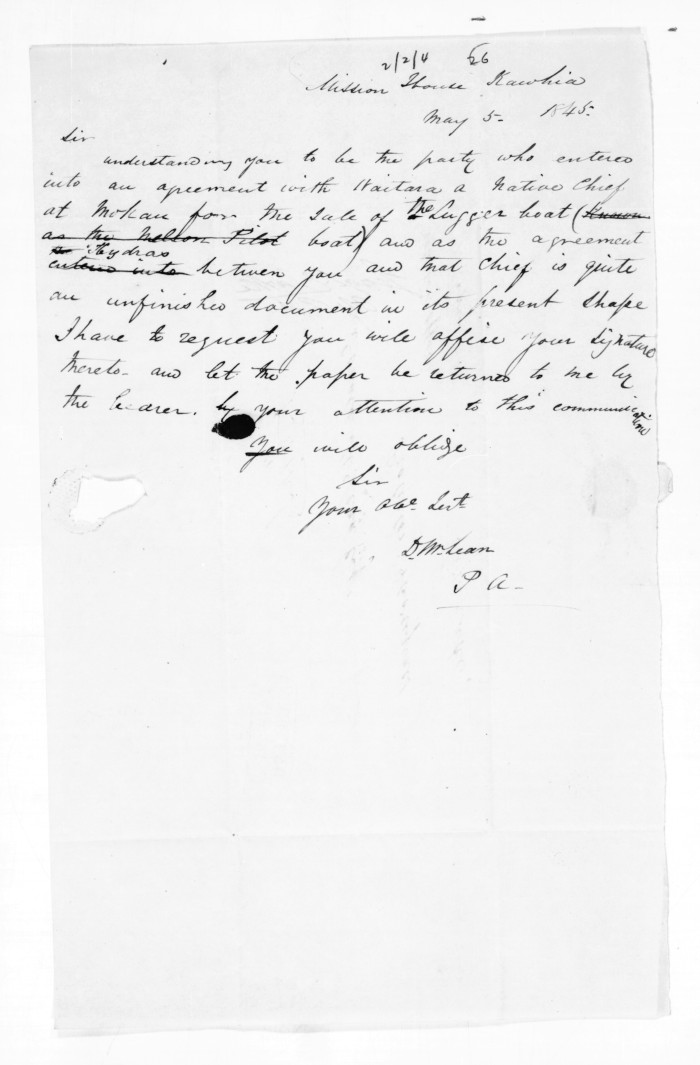 2/2/4 26
Mission House Kawhia
May 5- 1845-
Sir
understanding you to be the party who entered
into an agreement with Waitara a Native Chief
at Mokau for the Sale of the Lugger boat (Known
as the Nelson Pilot boat) and as the agreement
Hydras
entered into between you and that Chief is quite
an unfinished document in its present Shape
I have to request you will affise your Signature
thereto- and let the paper be returned to me by
the bearer. by your attention to this communication
You will oblige
Sir
Your Obt. Servt.
D. McLean
P A-